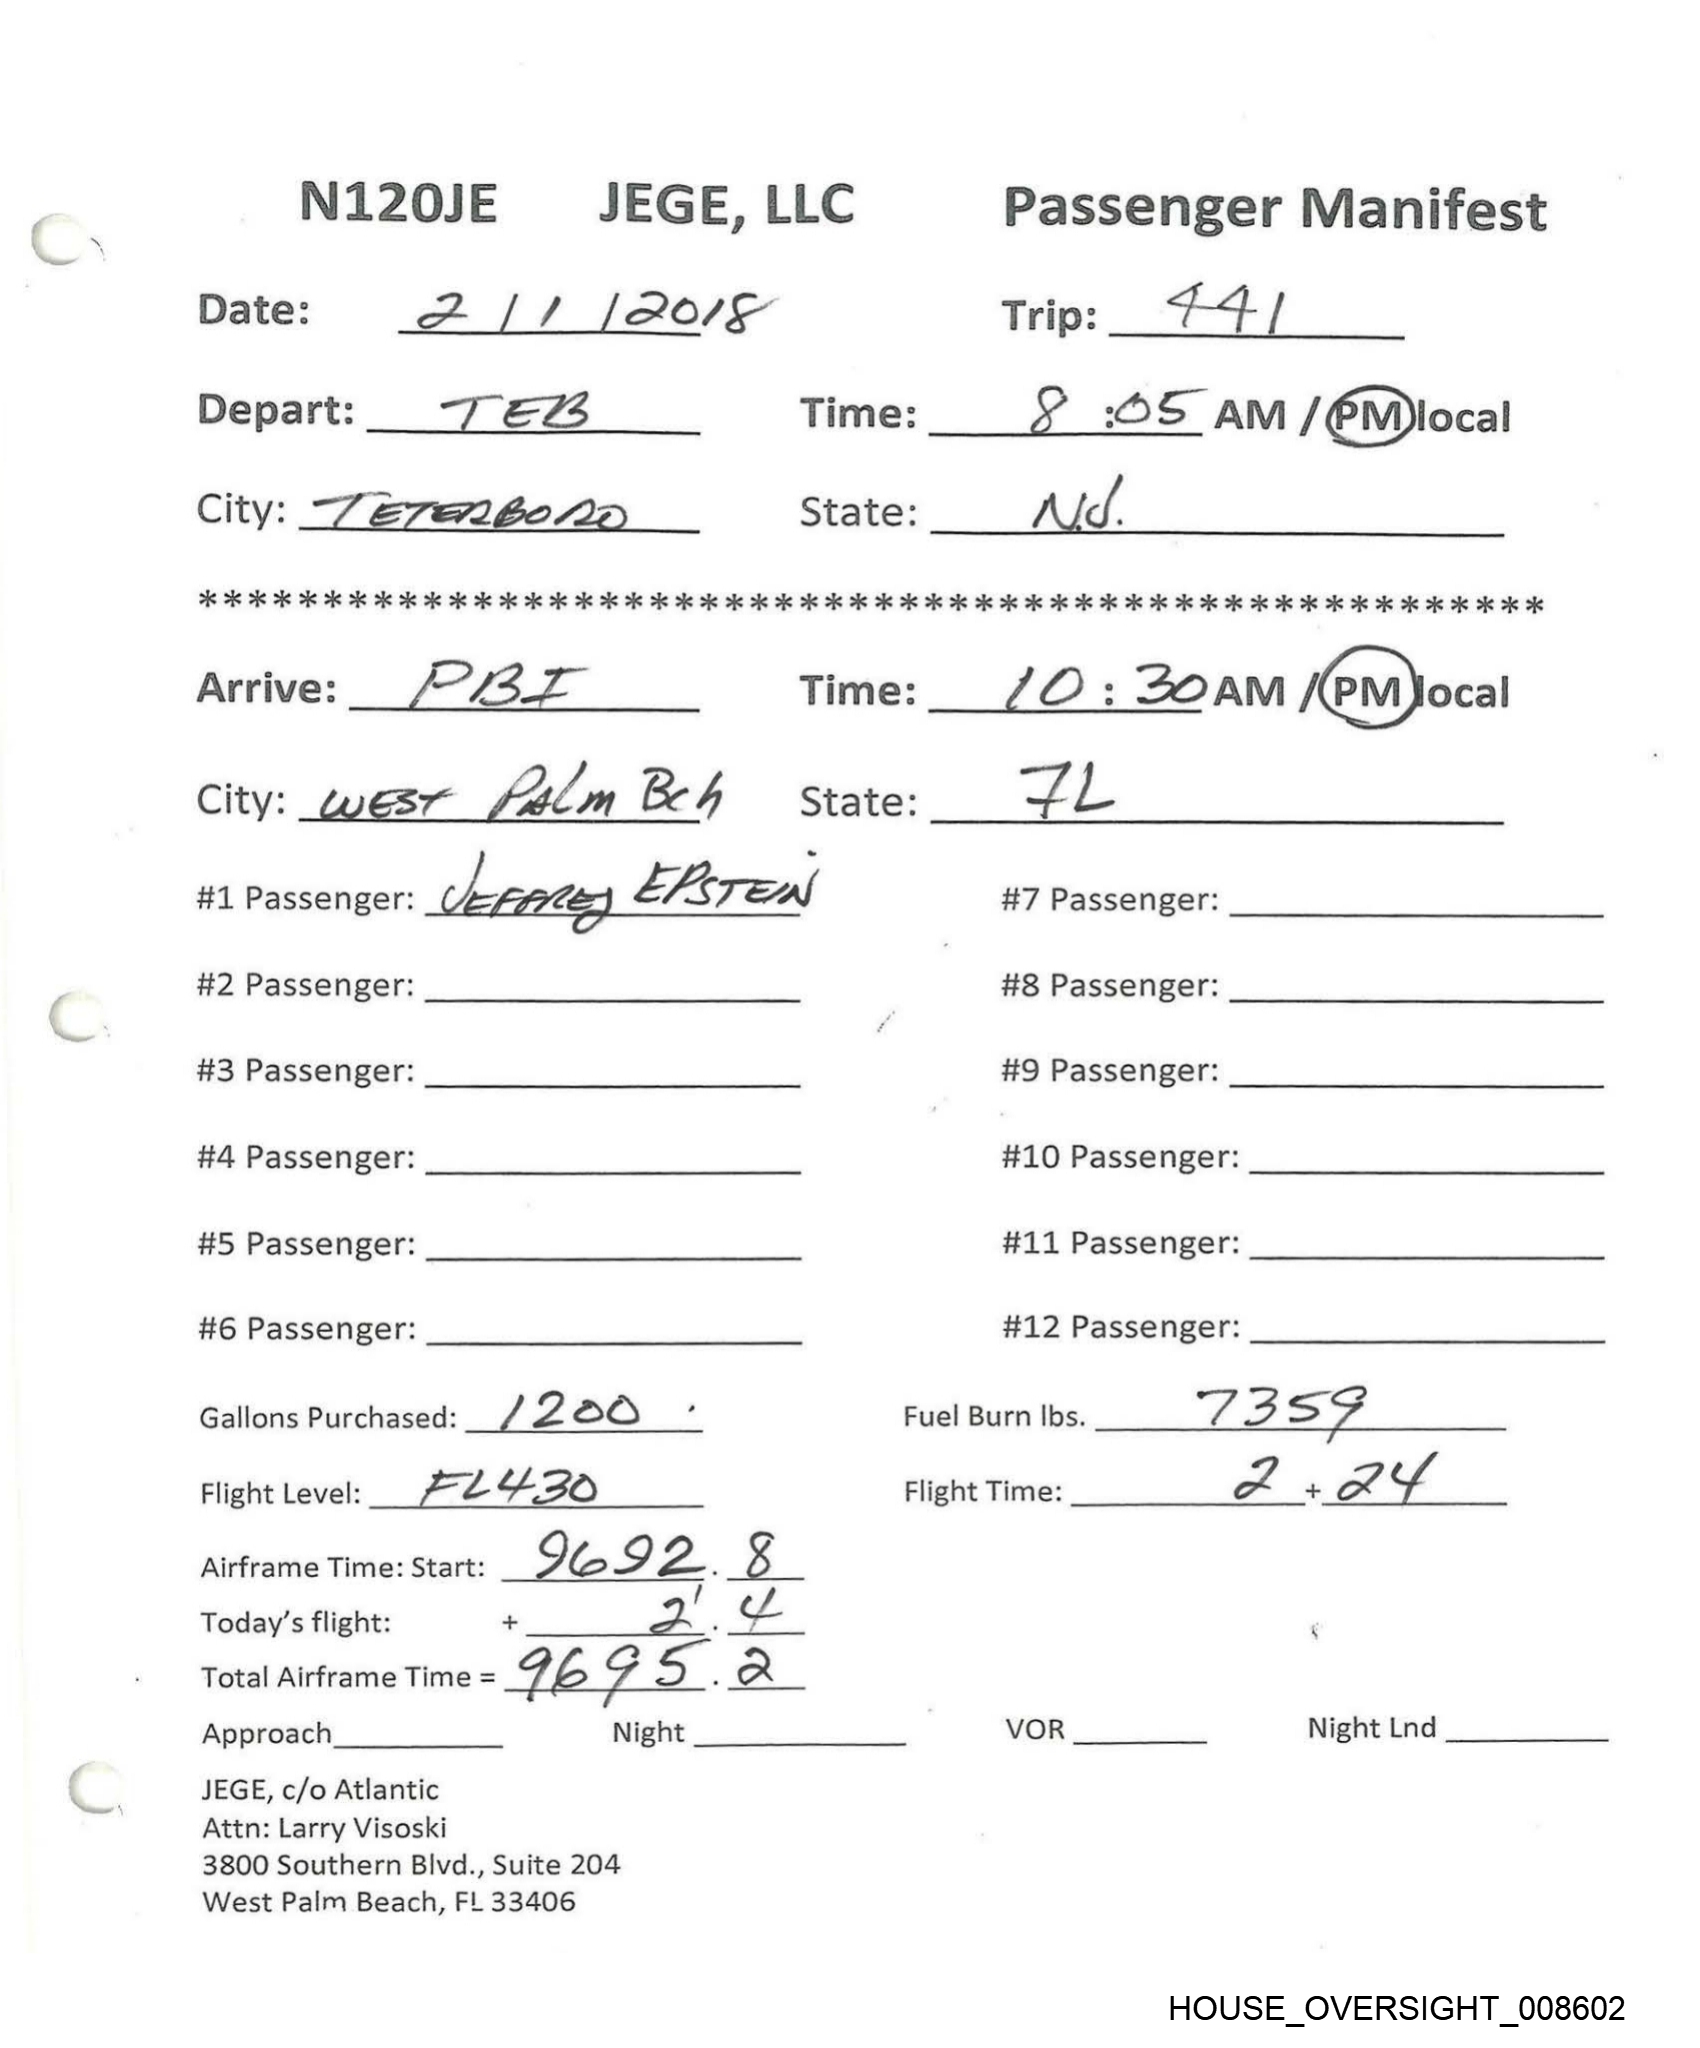 N120JE JEGE, LLC Passenger Manifest
Date: 2 / 1 / 2018 Trip: 441
Depart: TEB Time: 8 :05 AM / PM local
City: TETERBORO State: N.J.
******************************************************
Arrive: PBI Time: 10 : 30 AM / PM local
City: WEST PALM Bch State: FL
#1 Passenger: JEFFREY EPSTEIN #7 Passenger:
#2 Passenger: #8 Passenger:
#3 Passenger: #9 Passenger:
#4 Passenger: #10 Passenger:
#5 Passenger: #11 Passenger:
#6 Passenger: #12 Passenger:
Gallons Purchased: 1200 Fuel Burn lbs. 7359
Flight Level: FL430 Flight Time: 2 + 24
Airframe Time: Start: 9692 . 8
Today's flight: + 2 . 4
Total Airframe Time = 9695 . 2
Approach Night VOR Night Lnd
JEGE, c/o Atlantic
Attn: Larry Visoski
3800 Southern Blvd., Suite 204
West Palm Beach, FL 33406
HOUSE_OVERSIGHT_008602